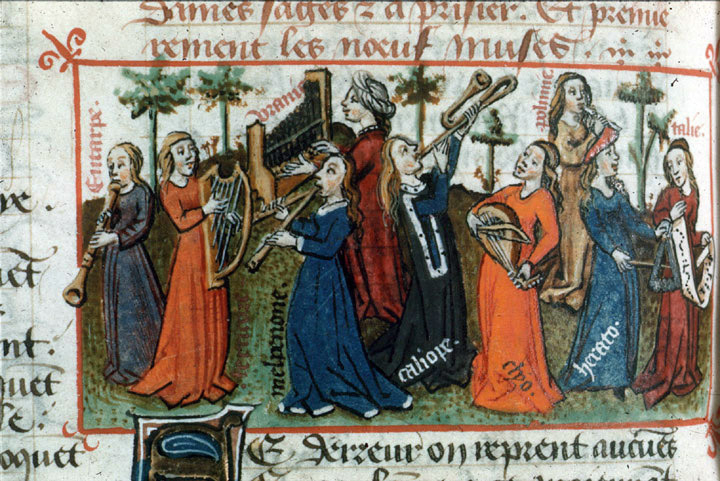 dames sages ⁊ a prisier. Et premie
rement les noeuf muses.
Euterpe.
vranie
talie.
melpenone.
caliope.
clyo.
herato.
nt:
quet
oquet
E derreur on reprent aucuēs